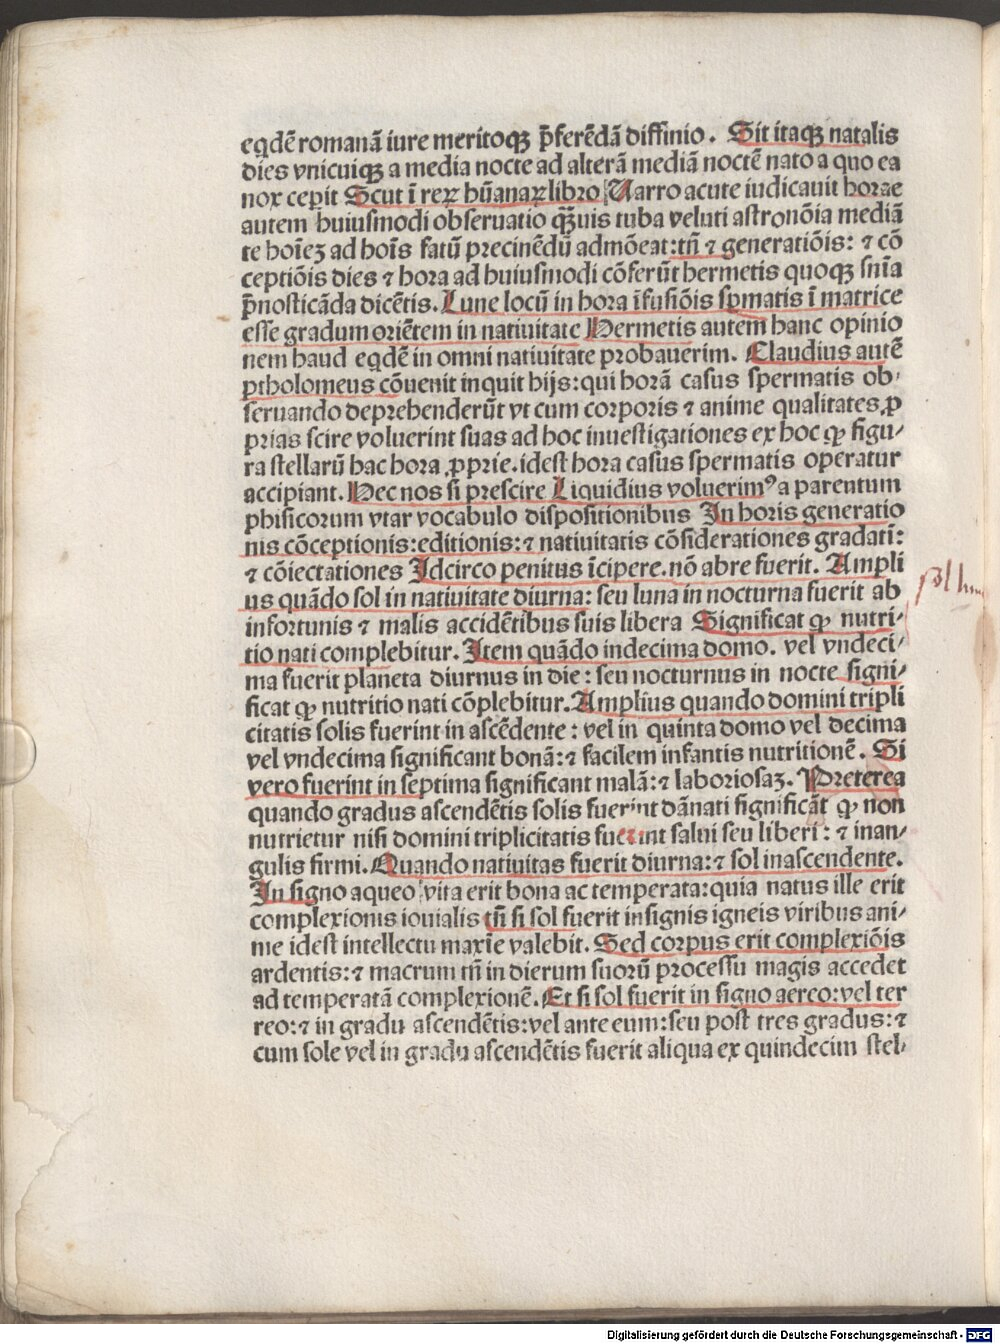 eqdē romanā iure meritoqꝫ p̄ferēdā diffinio. Sit itaqꝫ natalis
dies vnicuiqꝫ a media nocte ad alterā mediā noctē nato a quo ea
nox cepit Scut ī reꝝ hūanaꝝ libro Uarro acute iudicauit horae
autem huiusmodi obseruatio qꝫuis tuba veluti astronōia mediā
te hoīeꝫ ad hoīs fatū precinēdū admōeat: tn̄ ⁊ generatiōis: ⁊ cō
ceptiōis dies ⁊ hora ad huiusmodi cōferūt hermetis quoqꝫ sn̄ia
p̄nosticāda dicētis. Lune locū in hora īfusiōis spmatis ī matrice
esse gradum oriētem in natiuitate Hermetis autem hanc opinio
nem haud eqdē in omni natiuitate probauerim. Claudius autē
ptholomeus cōuenit inquit hijs: qui horā casus spermatis ob-
seruando deprehenderūt vt cum corporis ⁊ anime qualitates ꝓ
prias scire voluerint suas ad hoc inuestigationes ex hoc ꝙ figu-
ra stellarū hac hora ꝓprie. idest hora casus spermatis operatur
accipiant. Hec nos si prescire Liquidius voluerimꝰ a parentum
phisicorum vtar vocabulo dispositionibus In horis generatio
nis cōceptionis: editionis: ⁊ natiuitatis cōsiderationes gradatī:
⁊ cōiectationes Idcirco penitus īcipere. nō abre fuerit. Ampli
us quādo sol in natiuitate diurna: seu luna in nocturna fuerit ab
infortunis ⁊ malis accidētibus suis libera Significat ꝙ nutri-
tio nati complebitur. Item quādo indecima domo. vel vndeci-
ma fuerit planeta diurnus in die: seu nocturnus in nocte signi-
ficat ꝙ nutritio nati cōplebitur. Amplius quando domini tripli
citatis solis fuerint in ascēdente: vel in quinta domo vel decima
vel vndecima significant bonā: ⁊ facilem infantis nutritionē. Si
vero fuerint in septima significant malā: ⁊ laboriosaꝫ. Preterea
quando gradus ascendētis solis fuerint dānati significāt ꝙ non
nutrietur nisi domini triplicitatis fuerint salui seu liberi: ⁊ inan-
gulis firmi. Quando natiuitas fuerit diurna: ⁊ sol inascendente.
In signo aqueo vita erit bona ac temperata: quia natus ille erit
complexionis iouialis tn̄ si sol fuerit insignis igneis viribus ani-
me idest intellectu maxīe valebit. Sed corpus erit complexiōis
ardentis: ⁊ macrum tn̄ in dierum suorū processu magis accedet
ad temperatā complexionē. Et si sol fuerit in signo aereo: vel ter
reo: ⁊ in gradu ascendētis: vel ante eum: seu post tres gradus: ⁊
cum sole vel in gradu ascendētis fuerit aliqua ex quindecim stel-
Digitalisierung gefördert durch die Deutsche Forschungsgemeinschaft - DFG